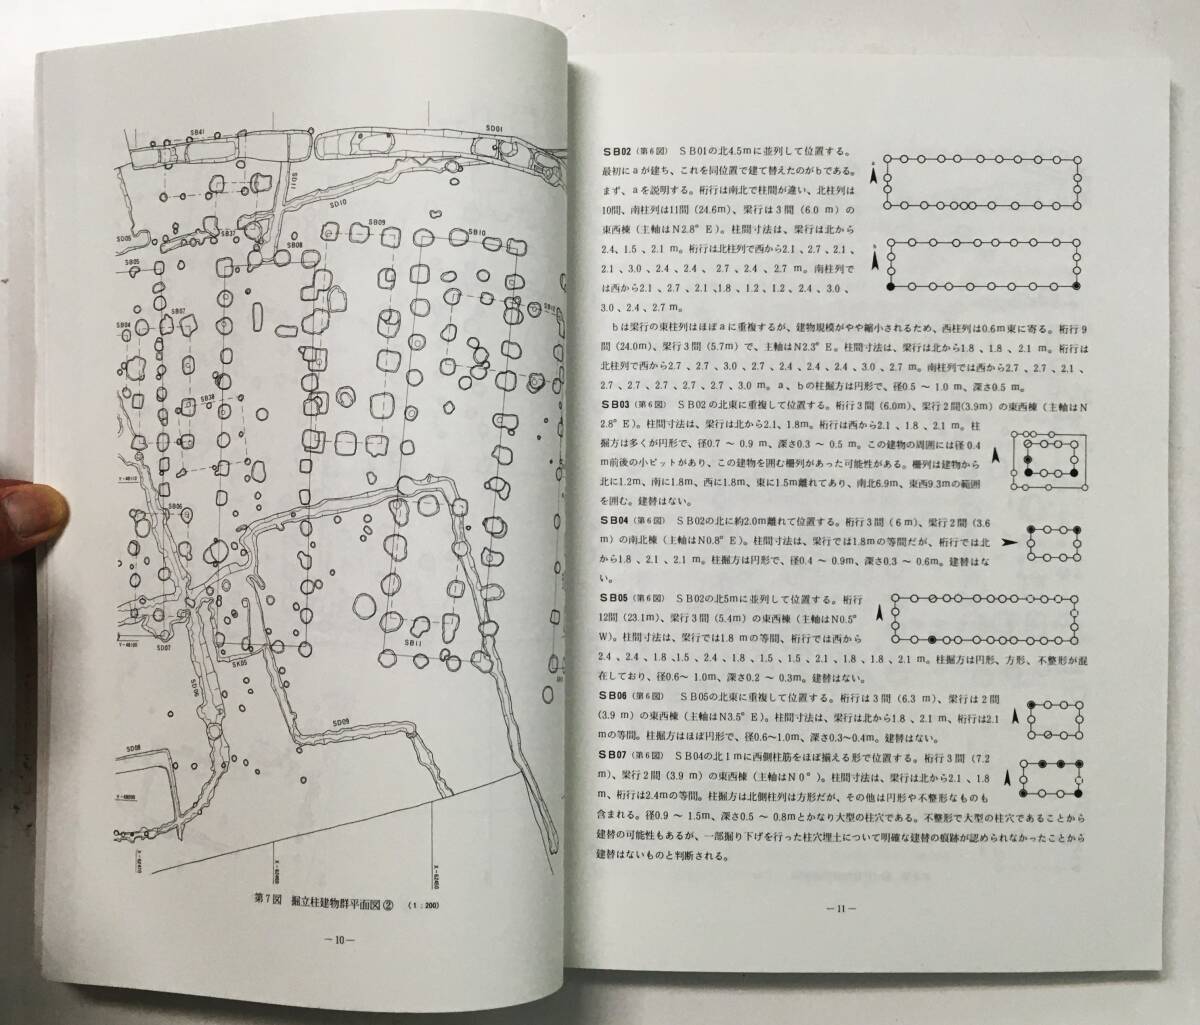 SB41
SD01
SD11
SD10
SD05
SB37
SB09
SB10
SB08
SB05
SB04
SB07
SB38
SB06
SD07
SD06
SK05
SB11
SD09
SD08
第7図 掘立柱建物群平面図② (1:200)
—10—
SB02(第6図) SB01の北4.5mに並列して位置する。
最初にaが建ち、これを同位置で建て替えたのがbである。
まず、aを説明する。桁行は南北で柱間が違い、北柱列は
10間、南柱列は11間(24.6m)、梁行は3間(6.0m)の
東西棟(主軸はN2.8°E)。柱間寸法は、梁行は北から
2.4、1.5、2.1m。桁行は北柱列で西から2.1、2.7、2.1、
2.1、3.0、2.4、2.4、2.7、2.4、2.7m。南柱列で
は西から2.1、2.7、2.1、1.8、1.2、1.2、2.4、3.0、
3.0、2.4、2.7m。
bは梁行の東柱列はほぼaに重複するが、建物規模がやや縮小されるため、西柱列は0.6m東に寄る。桁行9
間(24.0m)、梁行3間(5.7m)で、主軸はN2.3°E。柱間寸法は、梁行は北から1.8、1.8、2.1m。桁行は
北柱列で西から2.7、2.7、3.0、2.7、2.4、2.4、2.4、3.0、2.7m。南柱列では西から2.7、2.7、2.1、
2.7、2.7、2.7、2.7、2.7、3.0m。a、bの柱掘方は円形で、径0.5～1.0m、深さ0.5m。
SB03(第6図) SB02の北東に重複して位置する。桁行3間(6.0m)、梁行2間(3.9m)の東西棟(主軸はN
2.8°E)。柱間寸法は、梁行は北から2.1、1.8m。桁行は西から2.1、1.8、2.1m。柱
掘方は多くが円形で、径0.7～0.9m、深さ0.3～0.5m。この建物の周囲には径0.4
m前後の小ピットがあり、この建物を囲む柵列があった可能性がある。柵列は建物から
北に1.2m、南に1.8m、西に1.8m、東に1.5m離れてあり、南北6.9m、東西9.3mの範囲
を囲む。建替はない。
SB04(第6図) SB02の北に約2.0m離れて位置する。桁行3間(6m)、梁行2間(3.6
m)の南北棟(主軸はN0.8°E)。柱間寸法は、梁行では1.8mの等間だが、桁行では北
から1.8、2.1、2.1m。柱掘方は円形で、径0.4～0.9m、深さ0.3～0.6m。建替はな
い。
SB05(第6図) SB02の北5mに並列して位置する。桁行
12間(23.1m)、梁行3間(5.4m)の東西棟(主軸はN0.5°
W)。柱間寸法は、梁行では1.8mの等間、桁行では西から
2.4、2.4、1.8、1.5、2.4、1.8、1.5、1.5、2.1、1.8、1.8、2.1m。柱掘方は円形、方形、不整形が混
在しており、径0.6～1.0m、深さ0.2～0.3m。建替はない。
SB06(第6図) SB05の北東に重複して位置する。桁行は3間(6.3m)、梁行は2間
(3.9m)の東西棟(主軸はN3.5°E)。柱間寸法は、梁行は北から1.8、2.1m、桁行は2.1
mの等間。柱掘方はほぼ円形で、径0.6～1.0m、深さ0.3～0.4m。建替はない。
SB07(第6図) SB04の北1mに西側柱筋をほぼ揃える形で位置する。桁行3間(7.2
m)、梁行2間(3.9m)の東西棟(主軸はN0°)。柱間寸法は、梁行は北から2.1、1.8
m、桁行は2.4mの等間。柱掘方は北側柱列は方形だが、その他は円形や不整形なものも
含まれる。径0.9～1.5m、深さ0.5～0.8mとかなり大型の柱穴である。不整形で大型の柱穴であることから
建替の可能性もあるが、一部掘り下げを行った柱穴埋土について明確な建替の痕跡が認められなかったことから
建替はないものと判断される。
a
b
—11—